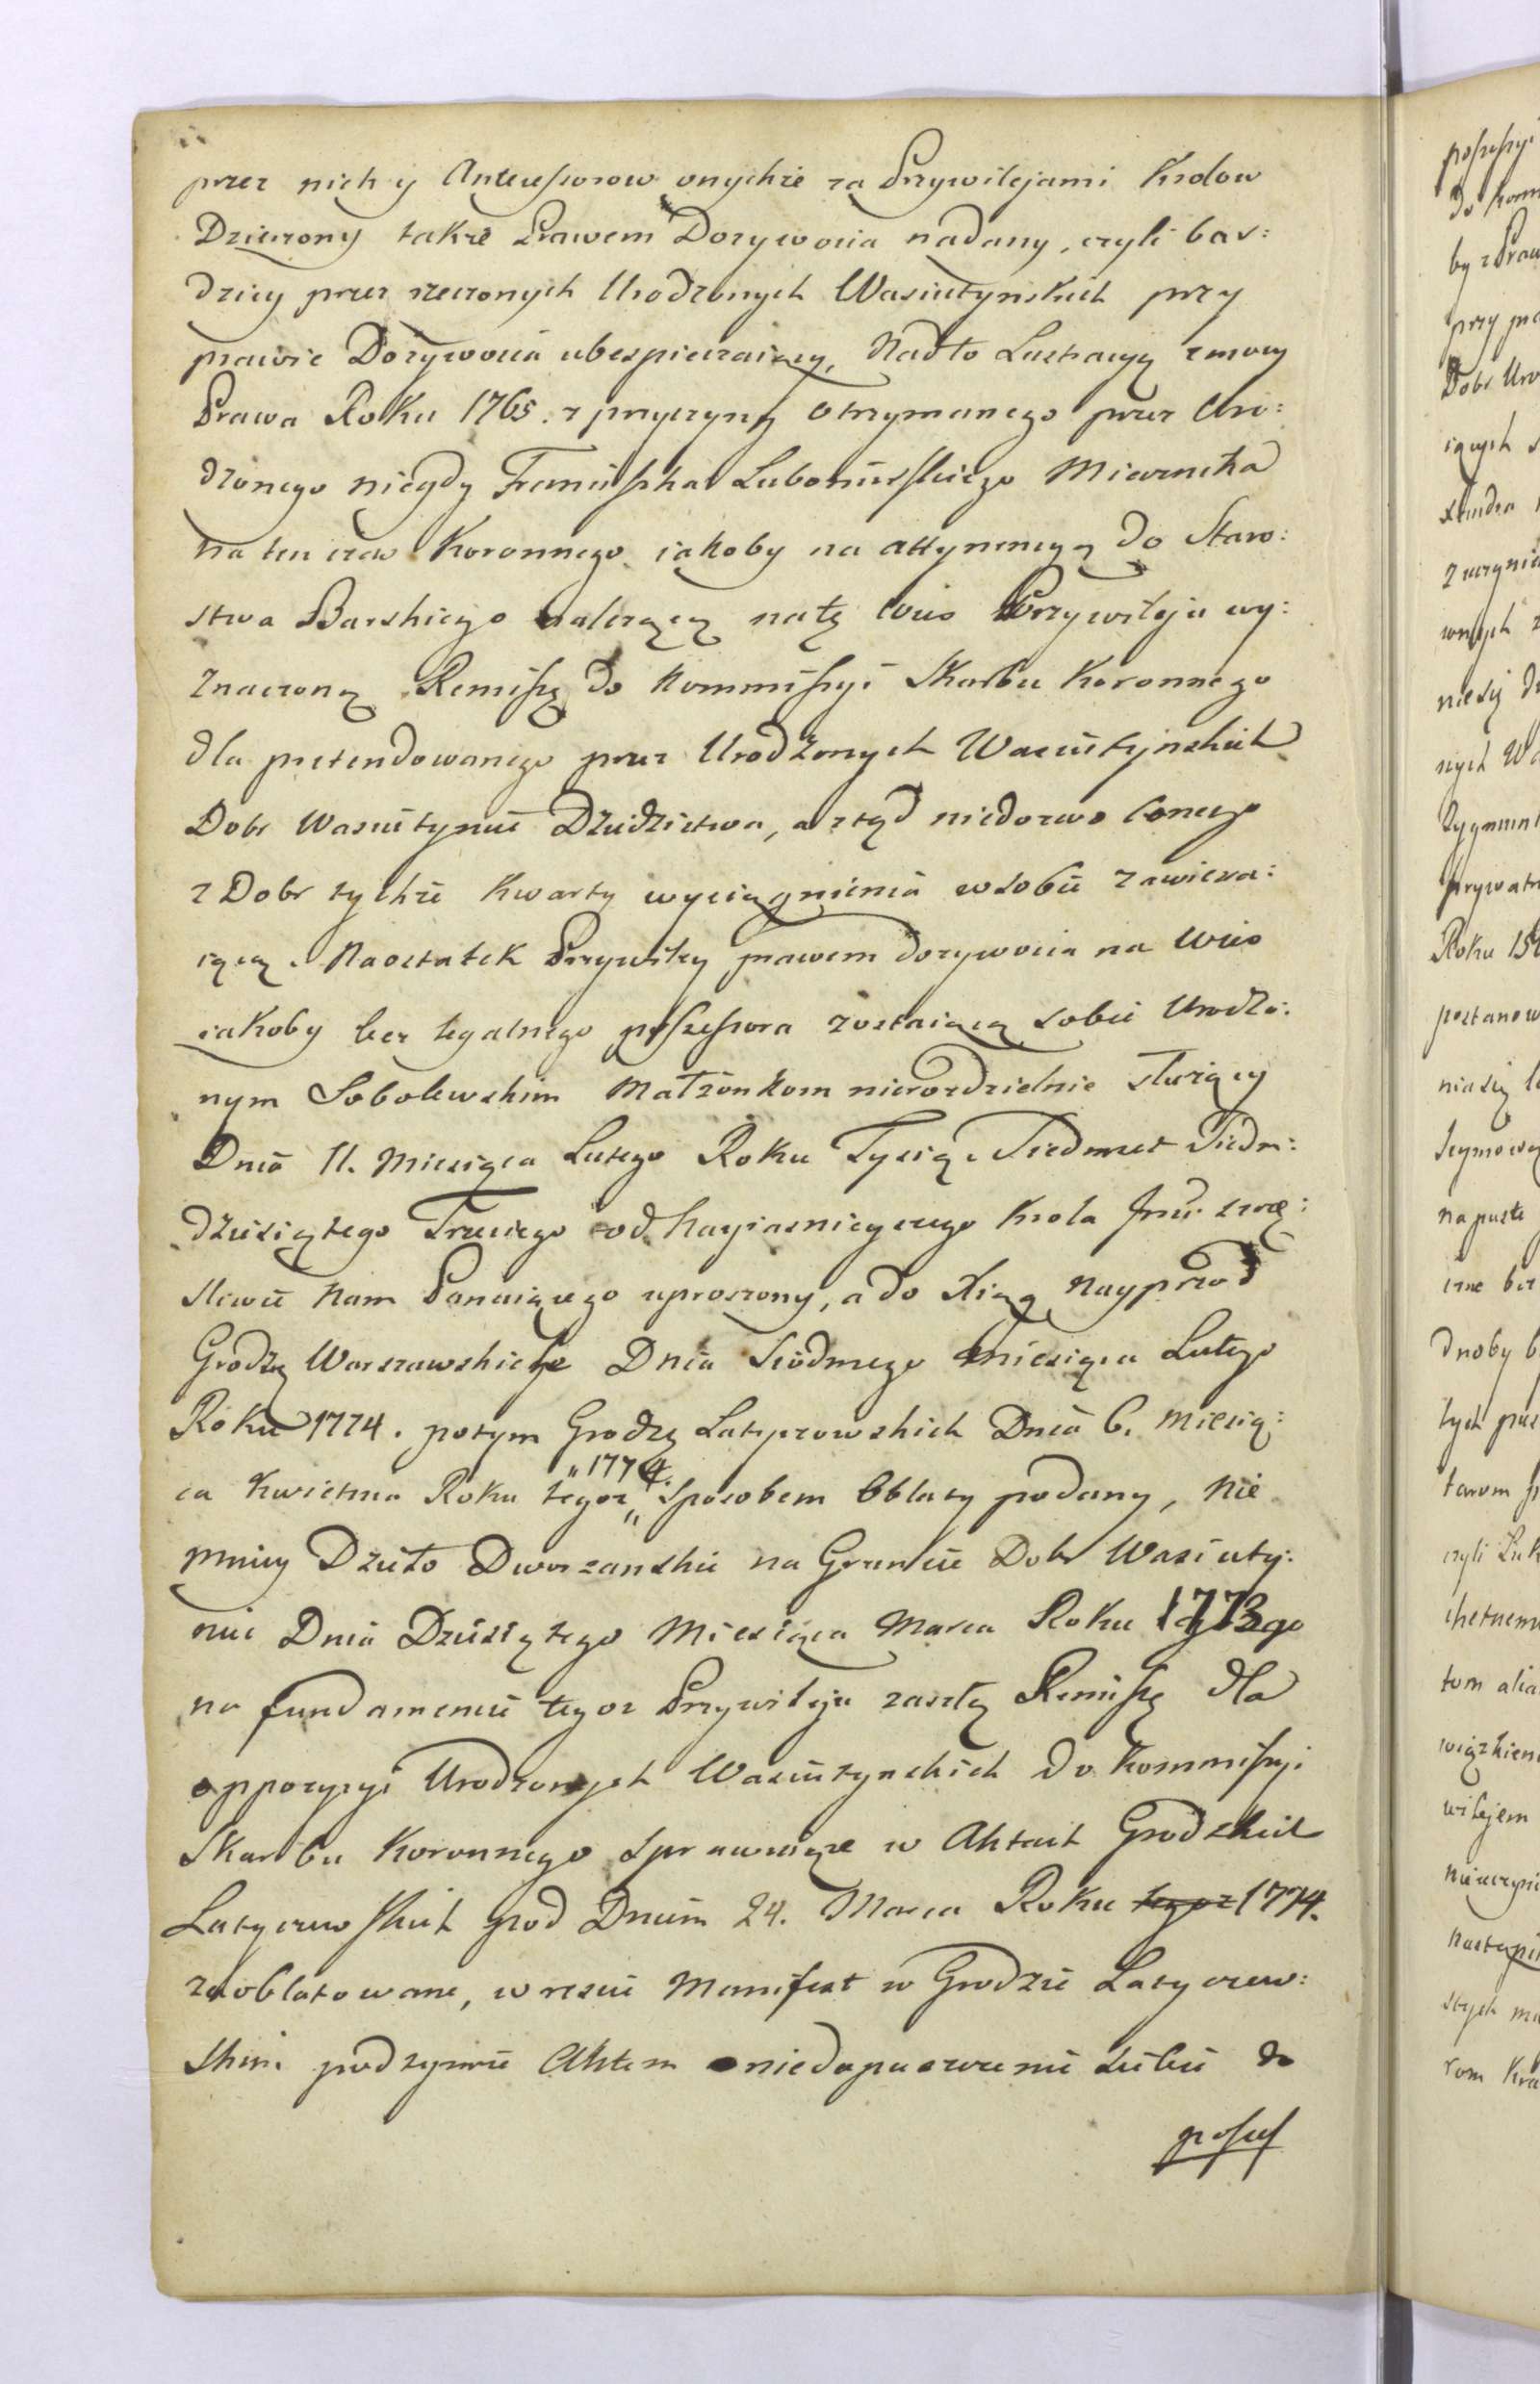 przez nich y Antecessorow onychże za Przywilejami Krolow
Dzierzony także Prawem Dozywocia nadany, czyli bar:
dziey przez rzeczonych Urodzonych Wasiutynskich przy
prawie Dożywocia ubespieczaiący, Nadto Lustracyą z mocy
Prawa Roku 1765. z przyczyny otrzymanego przez Uro:
dzonego niegdy Franciszka Lubomirskiego Miecznika
na ten czas Koronnego iakoby na attynencyą do Staro:
stwa Barskiego należącą na tę Wies Przywileju wy:
znaczoną Remissę do Kommissyi Skarbu Koronnego
dla pretendowanego przez Urodzonych Wasiutynskich
Dobr Wasiutyniec Dziedzictwa, a ztąd niedozwolonego
z Dobr tychże Kwarty wyciągnienia w sobie zawiera:
iącą. Naostatek Przywiley prawem dozywocia na Wies
iakoby bez legalnego possessora zostaiącą sobie Urodzo:
nym Sobolewskim Małżonkom nierozdzielnie służący
Dnia 11. Miesiąca Lutego Roku Tysiąc Siedmset Siedm:
dziesiątego Trzeciego od Nayiasnieyszego Krola Jmci szczę:
sliwie Nam Panuiącego uproszony, a do Xiąg Nayprzod
Grodzkich Warszawskich Dnia Siodmego Miesiąca Lutego
Roku 1774. potym Grodzkich Latyczowskich Dnia 6. Miesią:
ca Kwietnia Roku tegoż „1774. Sposobem Oblaty podany, Nie
mniey Dzieło Dworzanskie na Gruncie Dobr Wasiuty:
niec Dnia Dziesiątego Miesiąca Marca Roku 1773go
na fundamencie tegoż Przywileju zaszłą Remissę dla
oppozycyi Urodzonych Wasiutynskich do Kommissyi
Skarbu Koronnego sprawuiące w Aktach Grodzkich
Latyczewskich pod Dniem 24. Marca Roku tegoż 1774.
zaoblatowane, w reszcie Manifest w Grodzie Latyczew:
skim pod tymże Aktem o niedopuszczenie siebie do
possess